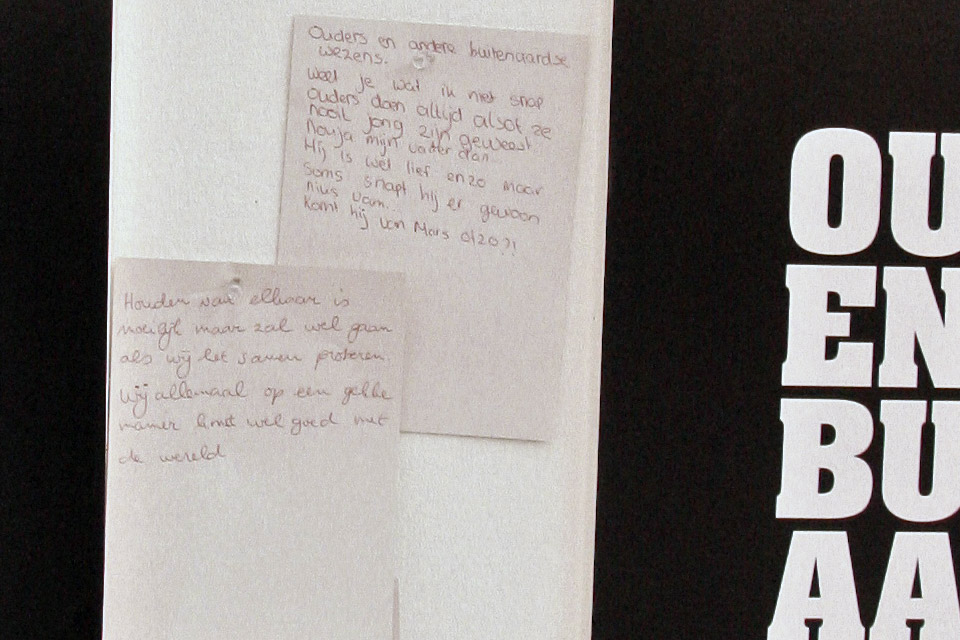 Ouders en andere buitenaardse
wezens.
Weet je wat ik niet snap
Ouders doen altijd alsof ze
nooit jong zijn geweest
Nouja mijn vader dan...
Hij is wel lief enzo maar
soms snapt hij er gewoon
niks van..
Komt hij van Mars ofzo?!
Houden van elkaar is
moeilijk maar zal wel gaan
als wij het samen proberen.
Wij allemaal op een gekke
manier komt wel goed met
de wereld
OU
EN
BU
AA